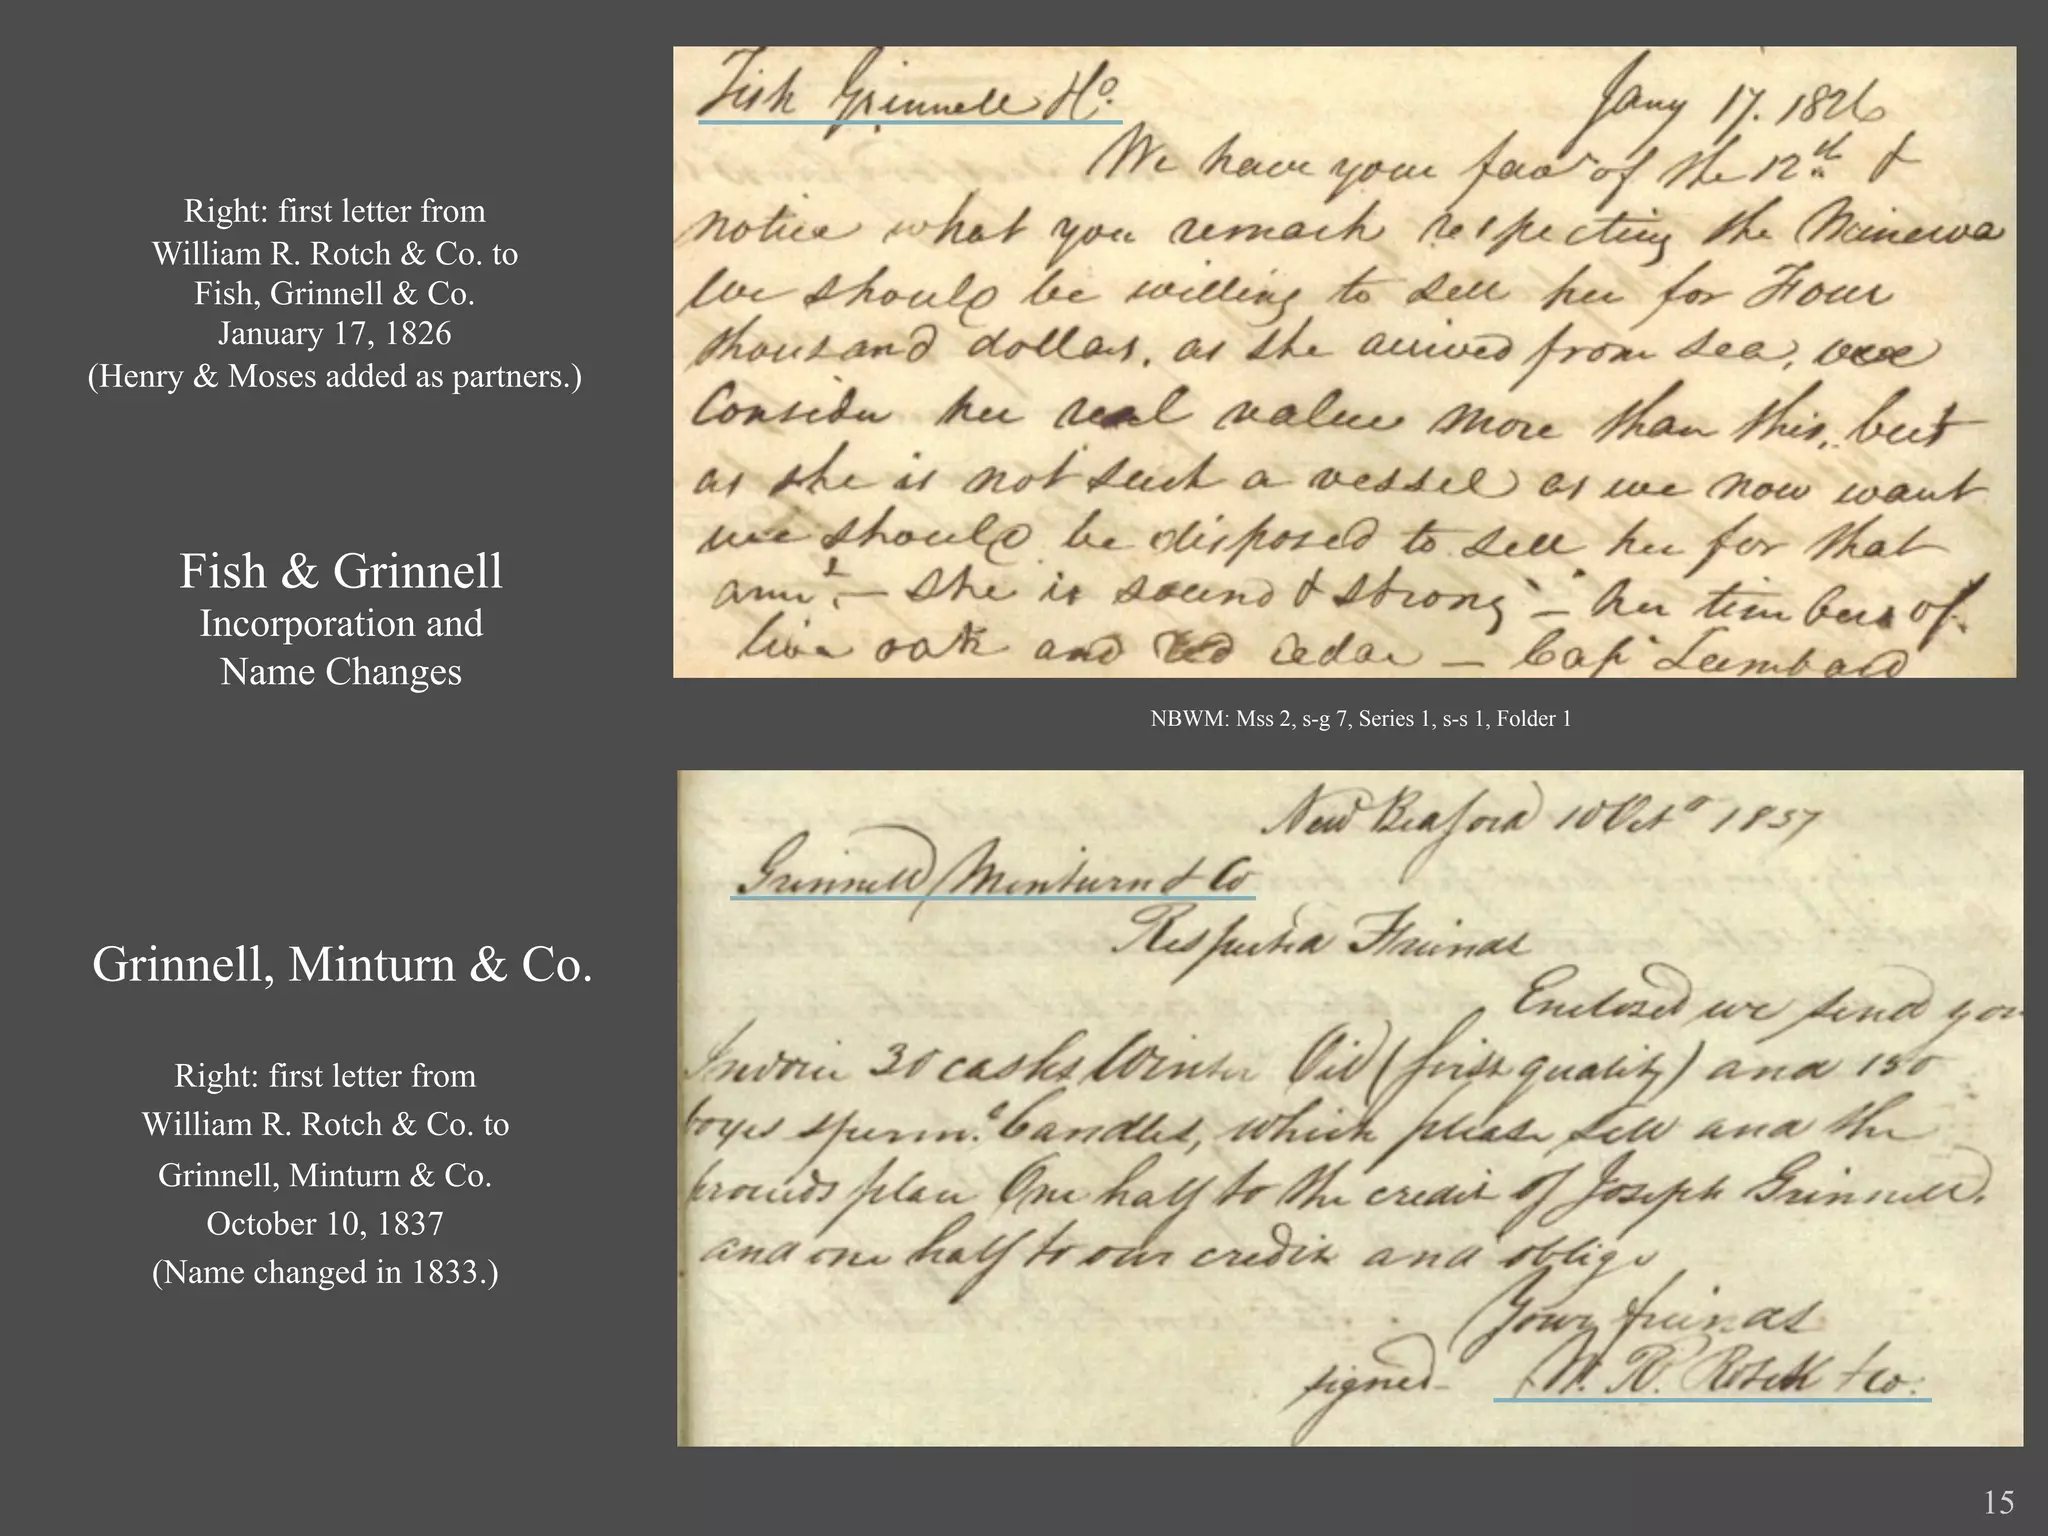 Right: first letter from
William R. Rotch & Co. to
Fish, Grinnell & Co.
January 17, 1826
(Henry & Moses added as partners.)
Fish & Grinnell
Incorporation and
Name Changes
Fish Grinnell & Co. Jany 17. 1826
We have your favr of the 12th. &
notice what you remark respecting the Minerva
We should be willing to sell her for Four
thousand dollars, as she arrived from sea, we
Consider her real value more than this, but
as she is not such a vessel as we now want
we should be disposed to sell her for that
amt. — she is sound & strong — her timbers of
live oak and red cedar — Capt Lumbard
NBWM: Mss 2, s-g 7, Series 1, s-s 1, Folder 1
New Bedford 10 Octo 1837
Grinnell, Minturn & Co
Respected Friends
Enclosed we send you
Invoice 30 casks Winter Oil (first quality) and 150
boxes sperm. Candles, which please sell and the
proceeds place One half to the credit of Joseph Grinnell,
and one half to our credit and oblige
Your friends
signed W. R. Rotch & Co.
Grinnell, Minturn & Co.
Right: first letter from
William R. Rotch & Co. to
Grinnell, Minturn & Co.
October 10, 1837
(Name changed in 1833.)
15